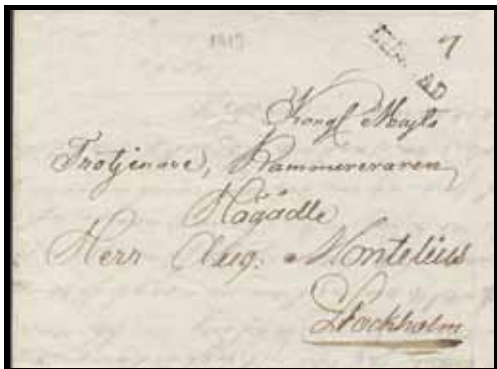 1817
7
Kongl Maj:ts
Trotjenare, Kammereraren,
Högädle
Herr Aug: Montelius
Stockholm